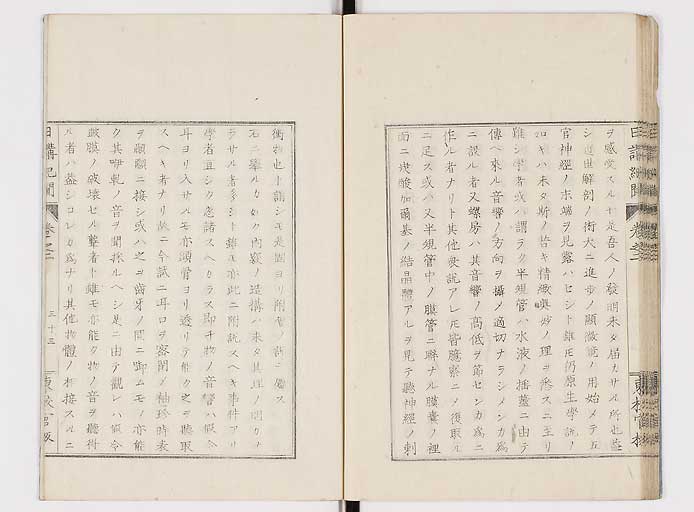 ヲ感受スル十是吾人ノ發明未タ届カサル所也蓋
シ近世解剖ノ術大ニ進歩ノ顯微鏡ノ用始メテ五
官神經ノ末端ヲ見露ハセシト雖㠪仍原生學説ノ
如キハ未タ斯ノ若キ精緻奥妙ノ理ヲ悉スニ至リ
難シ學者或ハ謂ラク半規管ハ水液ノ揺蘯ニ由テ
傳ヘ來ル音響ノ方向ヲ攝メ適切ナラシメンカ爲
ニ設ル者又螺房ハ其音響ノ高低ヲ節センカ爲ニ
作ル者ナリト其他衆説アレ㠪皆臆察ニノ復取ル
ニ足ス或ハ又半規管中ノ膜管ニ聯ナル膜嚢ノ裡
面ニ炭酸加爾基ノ結晶體アルヲ見テ聽神經ノ刺
衝物也ト論シモ是固ヨリ附會ノ説ニ屬ス
右ニ擧ルカ如ク内竅ノ造構ハ未タ其理ノ明カナ
ラサル者多シト雖モ亦此ニ附説スヘキ事件アリ
學者宜シク忘諸スヘカラス即チ物ノ音響ハ假令
耳ヨリ入サルモ亦頭骨ヨリ透リテ能ク之ヲ聽取
スヘキ者ナリ故ニ今試ニ耳口ヲ密閉シ袖珍時表
ヲ顱顬ニ接シ或ハ之ヲ齒牙ノ間ニ啣ムモノ亦能
ク其咿軋ノ音ヲ聞採ルヘシ是ニ由テ觀レハ假令
鼓膜ノ破壞セル聾者ト雖モ亦能ク物ノ音ヲ聽得
ル者ハ蓋シコレカ爲ナリ其他物體ノ相接スルニ
日講記聞
卷之二
三十三
東校官版